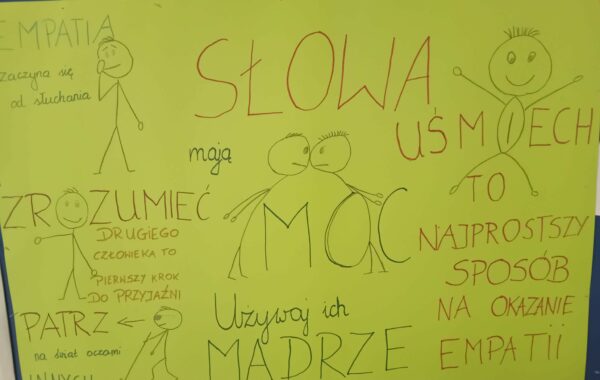 EMPATIA
zaczyna się
od słuchania
SŁOWA
mają
MOC
Używaj ich
MĄDRZE
UŚMIECH
TO
NAJPROSTSZY
SPOSÓB
NA OKAZANIE
EMPATII
ZROZUMIEĆ
DRUGIEGO
CZŁOWIEKA TO
PIERWSZY KROK
DO PRZYJAŹNI
PATRZ
na świat oczami
INNYCH